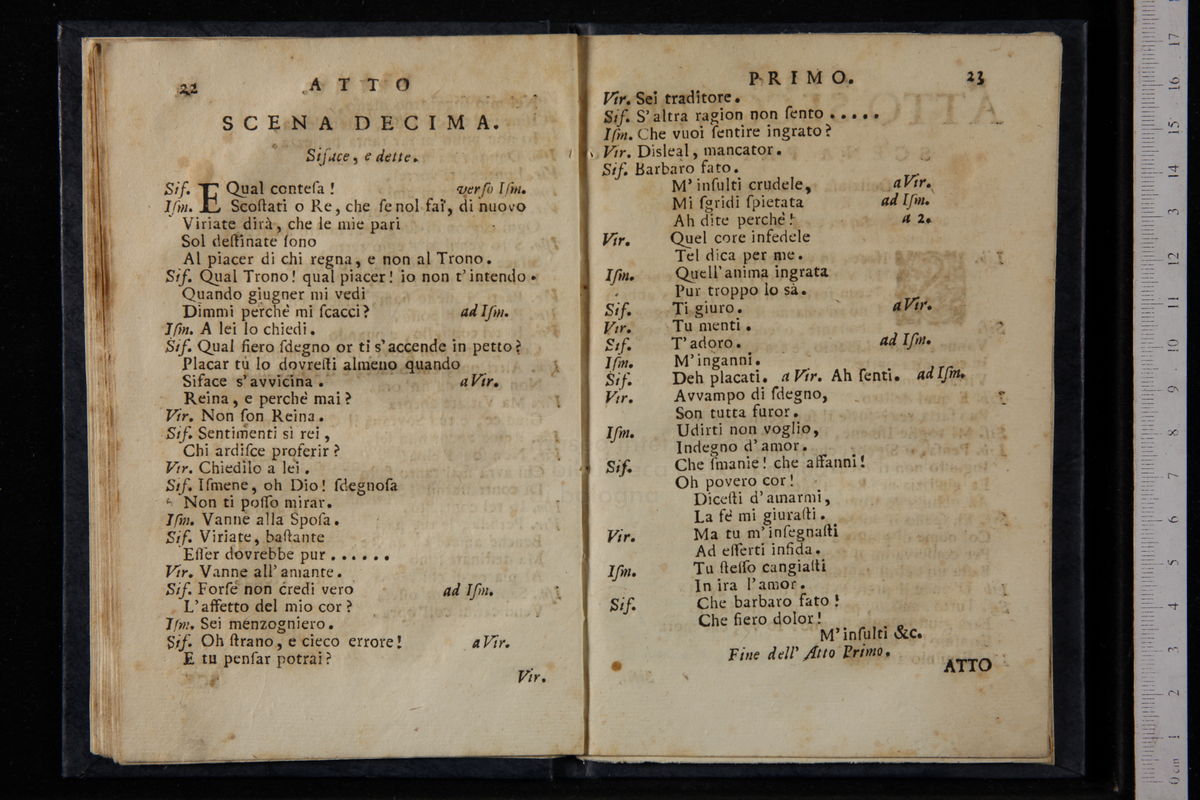 22 ATTO
SCENA DECIMA.
Siface, e dette.
Sif. E Qual conteſa! verſo Iſm.
Iſm. Scoſtati o Re, che ſe nol fai, di nuovo
Viriate dirà, che le mie pari
Sol deſtinate ſono
Al piacer di chi regna, e non al Trono.
Sif. Qual Trono! qual piacer! io non t'intendo.
Quando giugner mi vedi
Dimmi perchè mi ſcacci? ad Iſm.
Iſm. A lei lo chiedi.
Sif. Qual fiero ſdegno or ti s'accende in petto?
Placar tù lo dovreſti almeno quando
Siface s'avvicina. a Vir.
Reina, e perchè mai?
Vir. Non ſon Reina.
Sif. Sentimenti sì rei,
Chi ardiſce proferir?
Vir. Chiedilo a lei.
Sif. Iſmene, oh Dio! ſdegnoſa
Non ti poſſo mirar.
Iſm. Vanne alla Spoſa.
Sif. Viriate, baſtante
Eſſer dovrebbe pur ......
Vir. Vanne all'amante.
Sif. Forſe non credi vero ad Iſm.
L'affetto del mio cor?
Iſm. Sei menzogniero.
Sif. Oh ſtrano, e cieco errore! a Vir.
E tu penſar potrai?
Vir.
PRIMO. 23
Vir. Sei traditore.
Sif. S'altra ragion non ſento .....
Iſm. Che vuoi ſentire ingrato?
Vir. Disleal, mancator.
Sif. Barbaro fato.
M'inſulti crudele, a Vir.
Mi ſgridi ſpietata ad Iſm.
Ah dite perchè! a 2.
Vir. Quel core infedele
Tel dica per me.
Iſm. Quell'anima ingrata
Pur troppo lo sà.
Sif. Ti giuro. a Vir.
Vir. Tu menti.
Sif. T'adoro. ad Iſm.
Iſm. M'inganni.
Sif. Deh placati. a Vir. Ah ſenti. ad Iſm.
Vir. Avvampo di ſdegno,
Son tutta furor.
Iſm. Udirti non voglio,
Indegno d'amor.
Sif. Che ſmanie! che affanni!
Oh povero cor!
Diceſti d'amarmi,
La fè mi giuraſti.
Vir. Ma tu m'inſegnaſti
Ad eſſerti infida.
Iſm. Tu ſteſſo cangiaſti
In ira l'amor.
Sif. Che barbaro fato!
Che fiero dolor!
M'inſulti &c.
Fine dell' Atto Primo.
ATTO